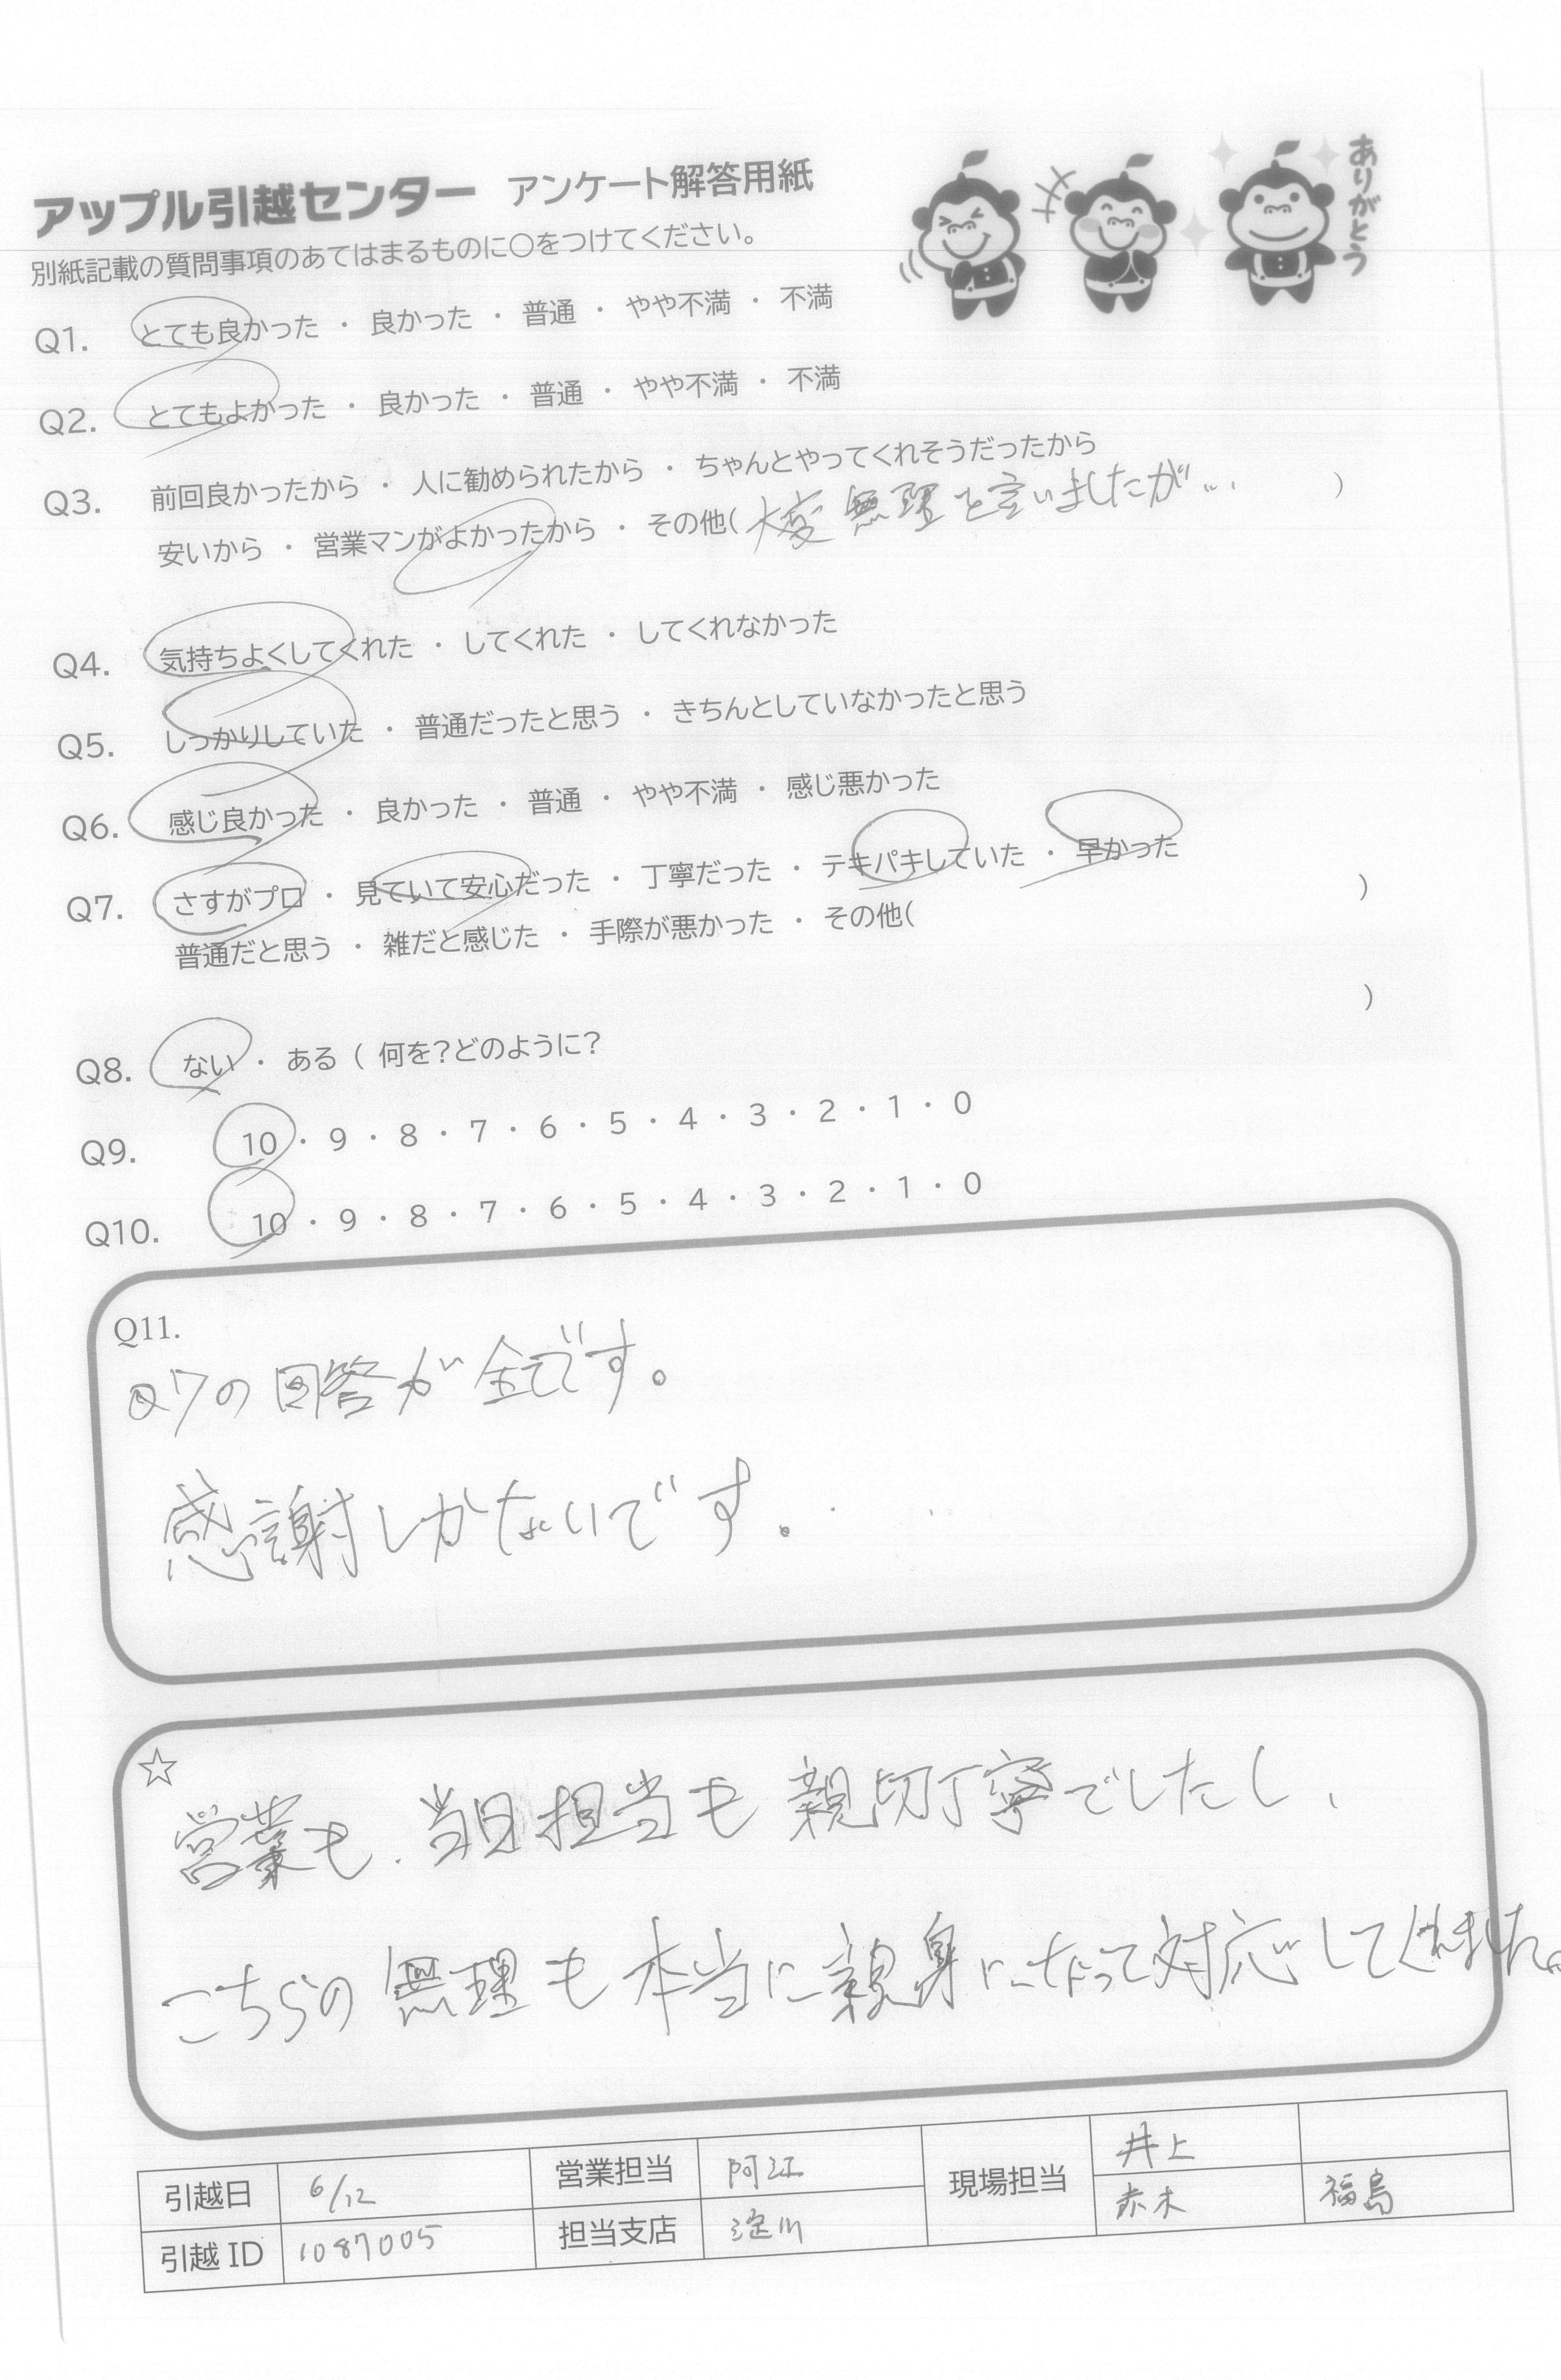 アップル引越センター アンケート解答用紙
ありがとう
別紙記載の質問事項のあてはまるものに〇をつけてください。
Q1. とても良かった ・ 良かった ・ 普通 ・ やや不満 ・ 不満
Q2. とてもよかった ・ 良かった ・ 普通 ・ やや不満 ・ 不満
Q3. 前回良かったから ・ 人に勧められたから ・ ちゃんとやってくれそうだったから
安いから ・ 営業マンがよかったから ・ その他( 大変無理を言いましたが… )
Q4. 気持ちよくしてくれた ・ してくれた ・ してくれなかった
Q5. しっかりしていた ・ 普通だったと思う ・ きちんとしていなかったと思う
Q6. 感じ良かった ・ 良かった ・ 普通 ・ やや不満 ・ 感じ悪かった
Q7. さすがプロ ・ 見ていて安心だった ・ 丁寧だった ・ テキパキしていた ・ 早かった
普通だと思う ・ 雑だと感じた ・ 手際が悪かった ・ その他( )
Q8. ない ・ ある ( 何を?どのように? )
Q9. 10 ・ 9 ・ 8 ・ 7 ・ 6 ・ 5 ・ 4 ・ 3 ・ 2 ・ 1 ・ 0
Q10. 10 ・ 9 ・ 8 ・ 7 ・ 6 ・ 5 ・ 4 ・ 3 ・ 2 ・ 1 ・ 0
Q11.
Q7の回答が全てです。
感謝しかないです。
☆
営業も、当日担当も親切丁寧でしたし、
こちらの無理も本当に親身になって対応してくれました。
引越日 6/12 営業担当 阿江 現場担当 井上
引越ID 1087005 担当支店 淀川 赤木 福島